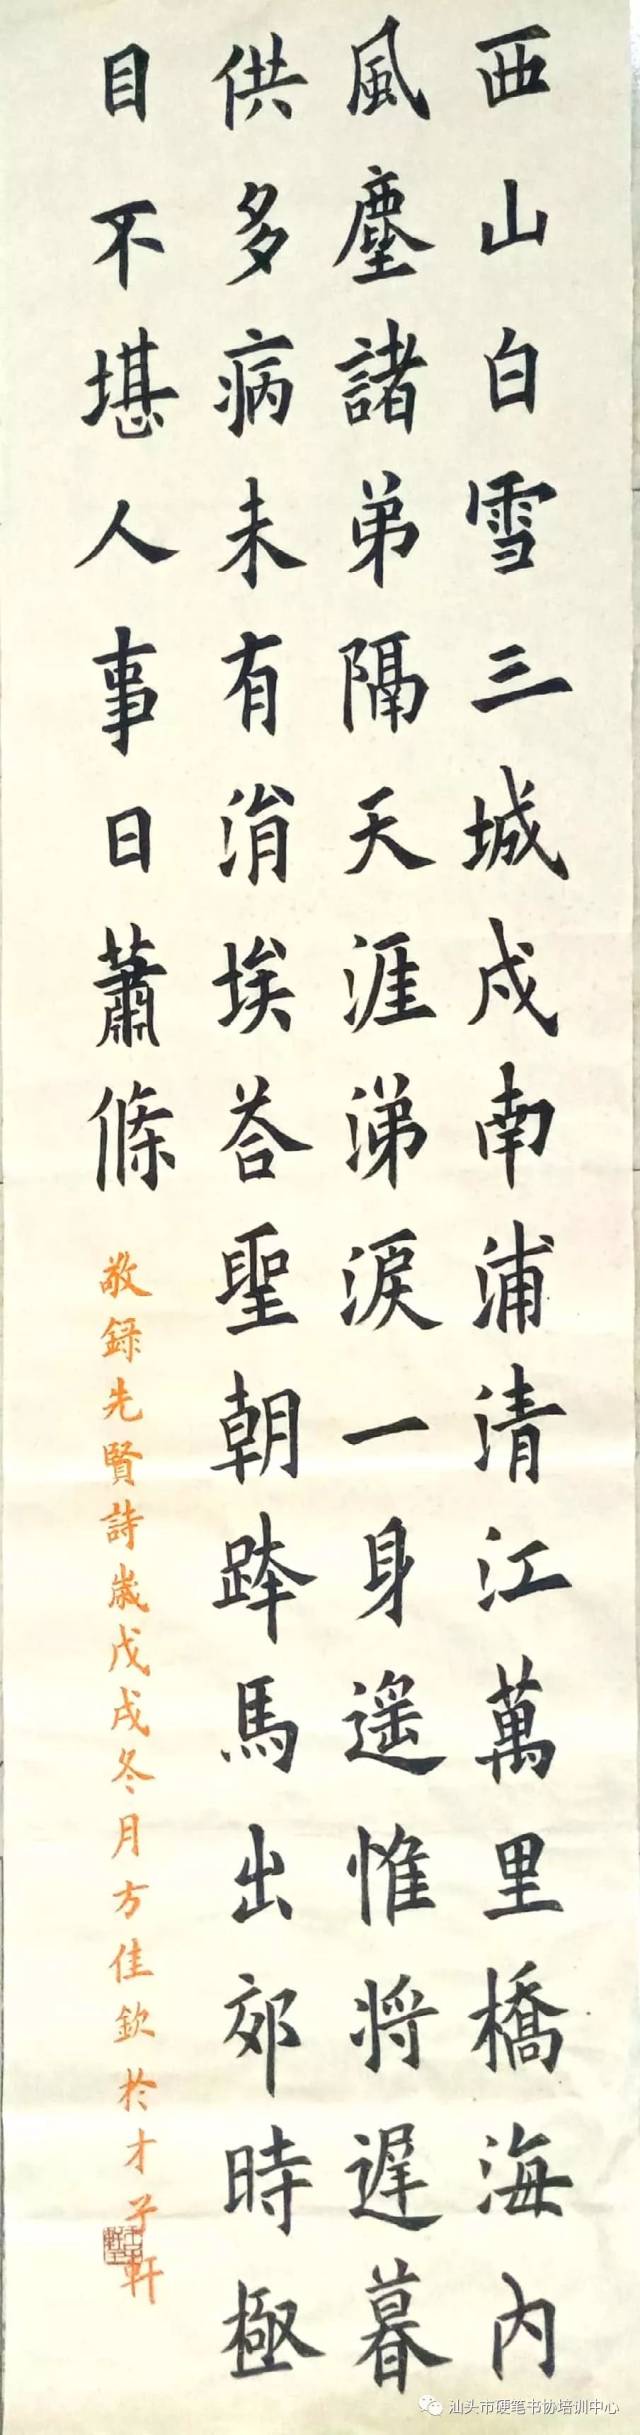 西山白雪三城戍南浦清江萬里橋海內
風塵諸弟隔天涯涕淚一身遥惟将遲暮
供多病未有涓埃荅聖朝跨馬出郊時極
目不堪人事日蕭條
敬録先賢詩歲戊戌冬月方佳欽於才子軒
汕头市硬笔书协培训中心